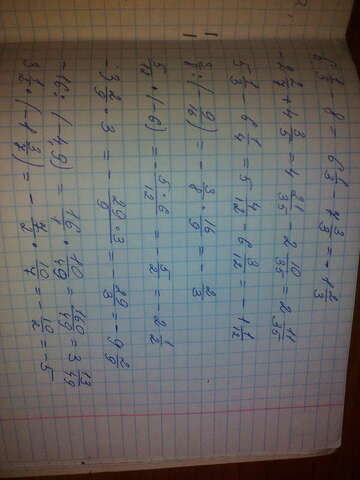 6 1/3 - 8 = 6 1/3 - 7 3/3 = -1 2/3
-2 2/7 + 4 3/5 = 4 21/35 - 2 10/35 = 2 11/35
5 1/3 - 6 1/4 = 5 4/12 - 6 3/12 = -1 1/12
3/8 : (-9/16) = -3/8 · 16/9 = -2/3
5/12 · (-6) = -5·6/12 = -5/2 = -2 1/2
-3 2/9 · 3 = -29·3/9 = -29/3 = -9 2/9
-16 : (-4,9) = 16/1 · 10/49 = 160/49 = 3 13/49
3 1/2 · (-1 3/7) = -7/2 · 10/7 = -10/2 = -5